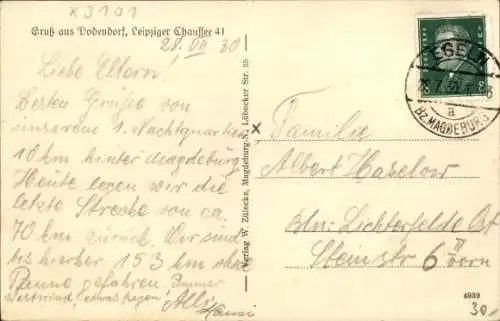 x3101
Gruß aus Dodendorf, Leipziger Chaussee 41
28. VII 30
Liebe Eltern!
Besten Grüße von
unserem 1. Nachtquartier
10 km hinter Magdeburg
Heute legen wir die
letzte Strecke von ca.
70 km zurück. Wir sind
bis hierher 153 km ohne
Panne gefahren. Immer
Westwind, etwas Regen!
Alli
Hansi
Verlag W. Zülecke, Magdeburg-N., Lübecker Str. 35
EGELN
a
Bz. MAGDEBURG
8 8
x
Familie
Albert Haselow
Bln. Lichterfelde Ost
str 6 II
vorn
4989
30